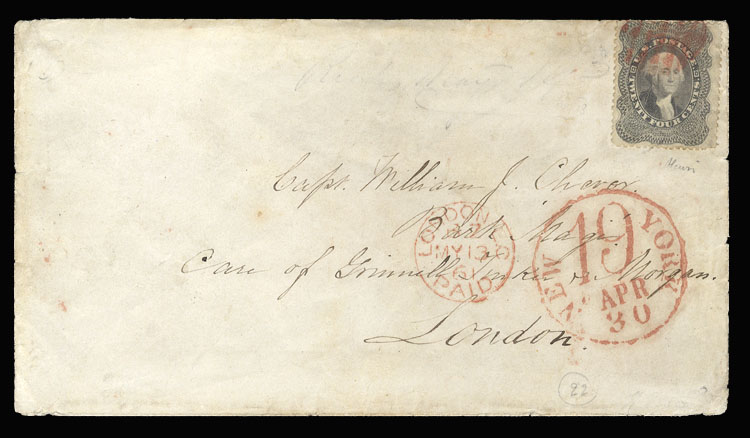 U.S. POSTAGE
TWENTY FOUR CENTS
Capt. William J. Chever.
Bark "Nagis"
Care of Grinnell Tinker & Morgan.
London.
LONDON
MY 13
61
PAID
NEW YORK
19
APR
30
22